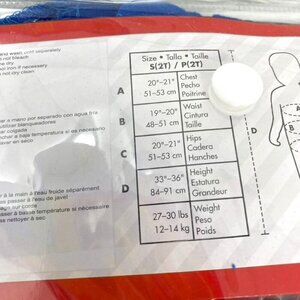 and wash until separately
not bleach
dry
iron if necessary
not dry clean
Size • Talla • Taille
S(2T) / P(2T)
A
20"–21" Chest
51–53 cm Pecho
Poitrine
19"–20" Waist
B
48–51 cm Cintura
Taille
a mano por separado con agua fría
utilizar blanqueadores
colgada
a baja temperatura si es necesario
en seco
20"–21" Hips
C
51–53 cm Cadera
Hanches
33"–36" Height
D
84–91 cm Estatura
Grandeur
27–30 lbs Weight
12–14 kg Peso
Poids
à la main à l'eau froide séparément
pas passer à l'eau de javel
sur corde
à basse température si nécessaire
pas nettoyer à sec
D
B